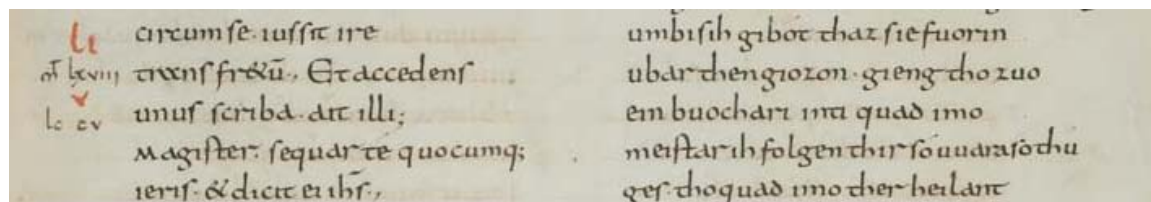 circum se. iussit ire
trans fr&ū., Et accedens
unus scriba. ait illi;
Magister. sequar té quocumq;
ieris. & dicit ei ihs̄.,
li
mt̄ lxviii
v
lc cv
umbi sih gibót thaz sie fuorin
ubar then giozon. gieng tho zuo
ein buochari inti quad imo
meistar ih folgen thir só uuara so thu
ges. tho quad imo ther heilant